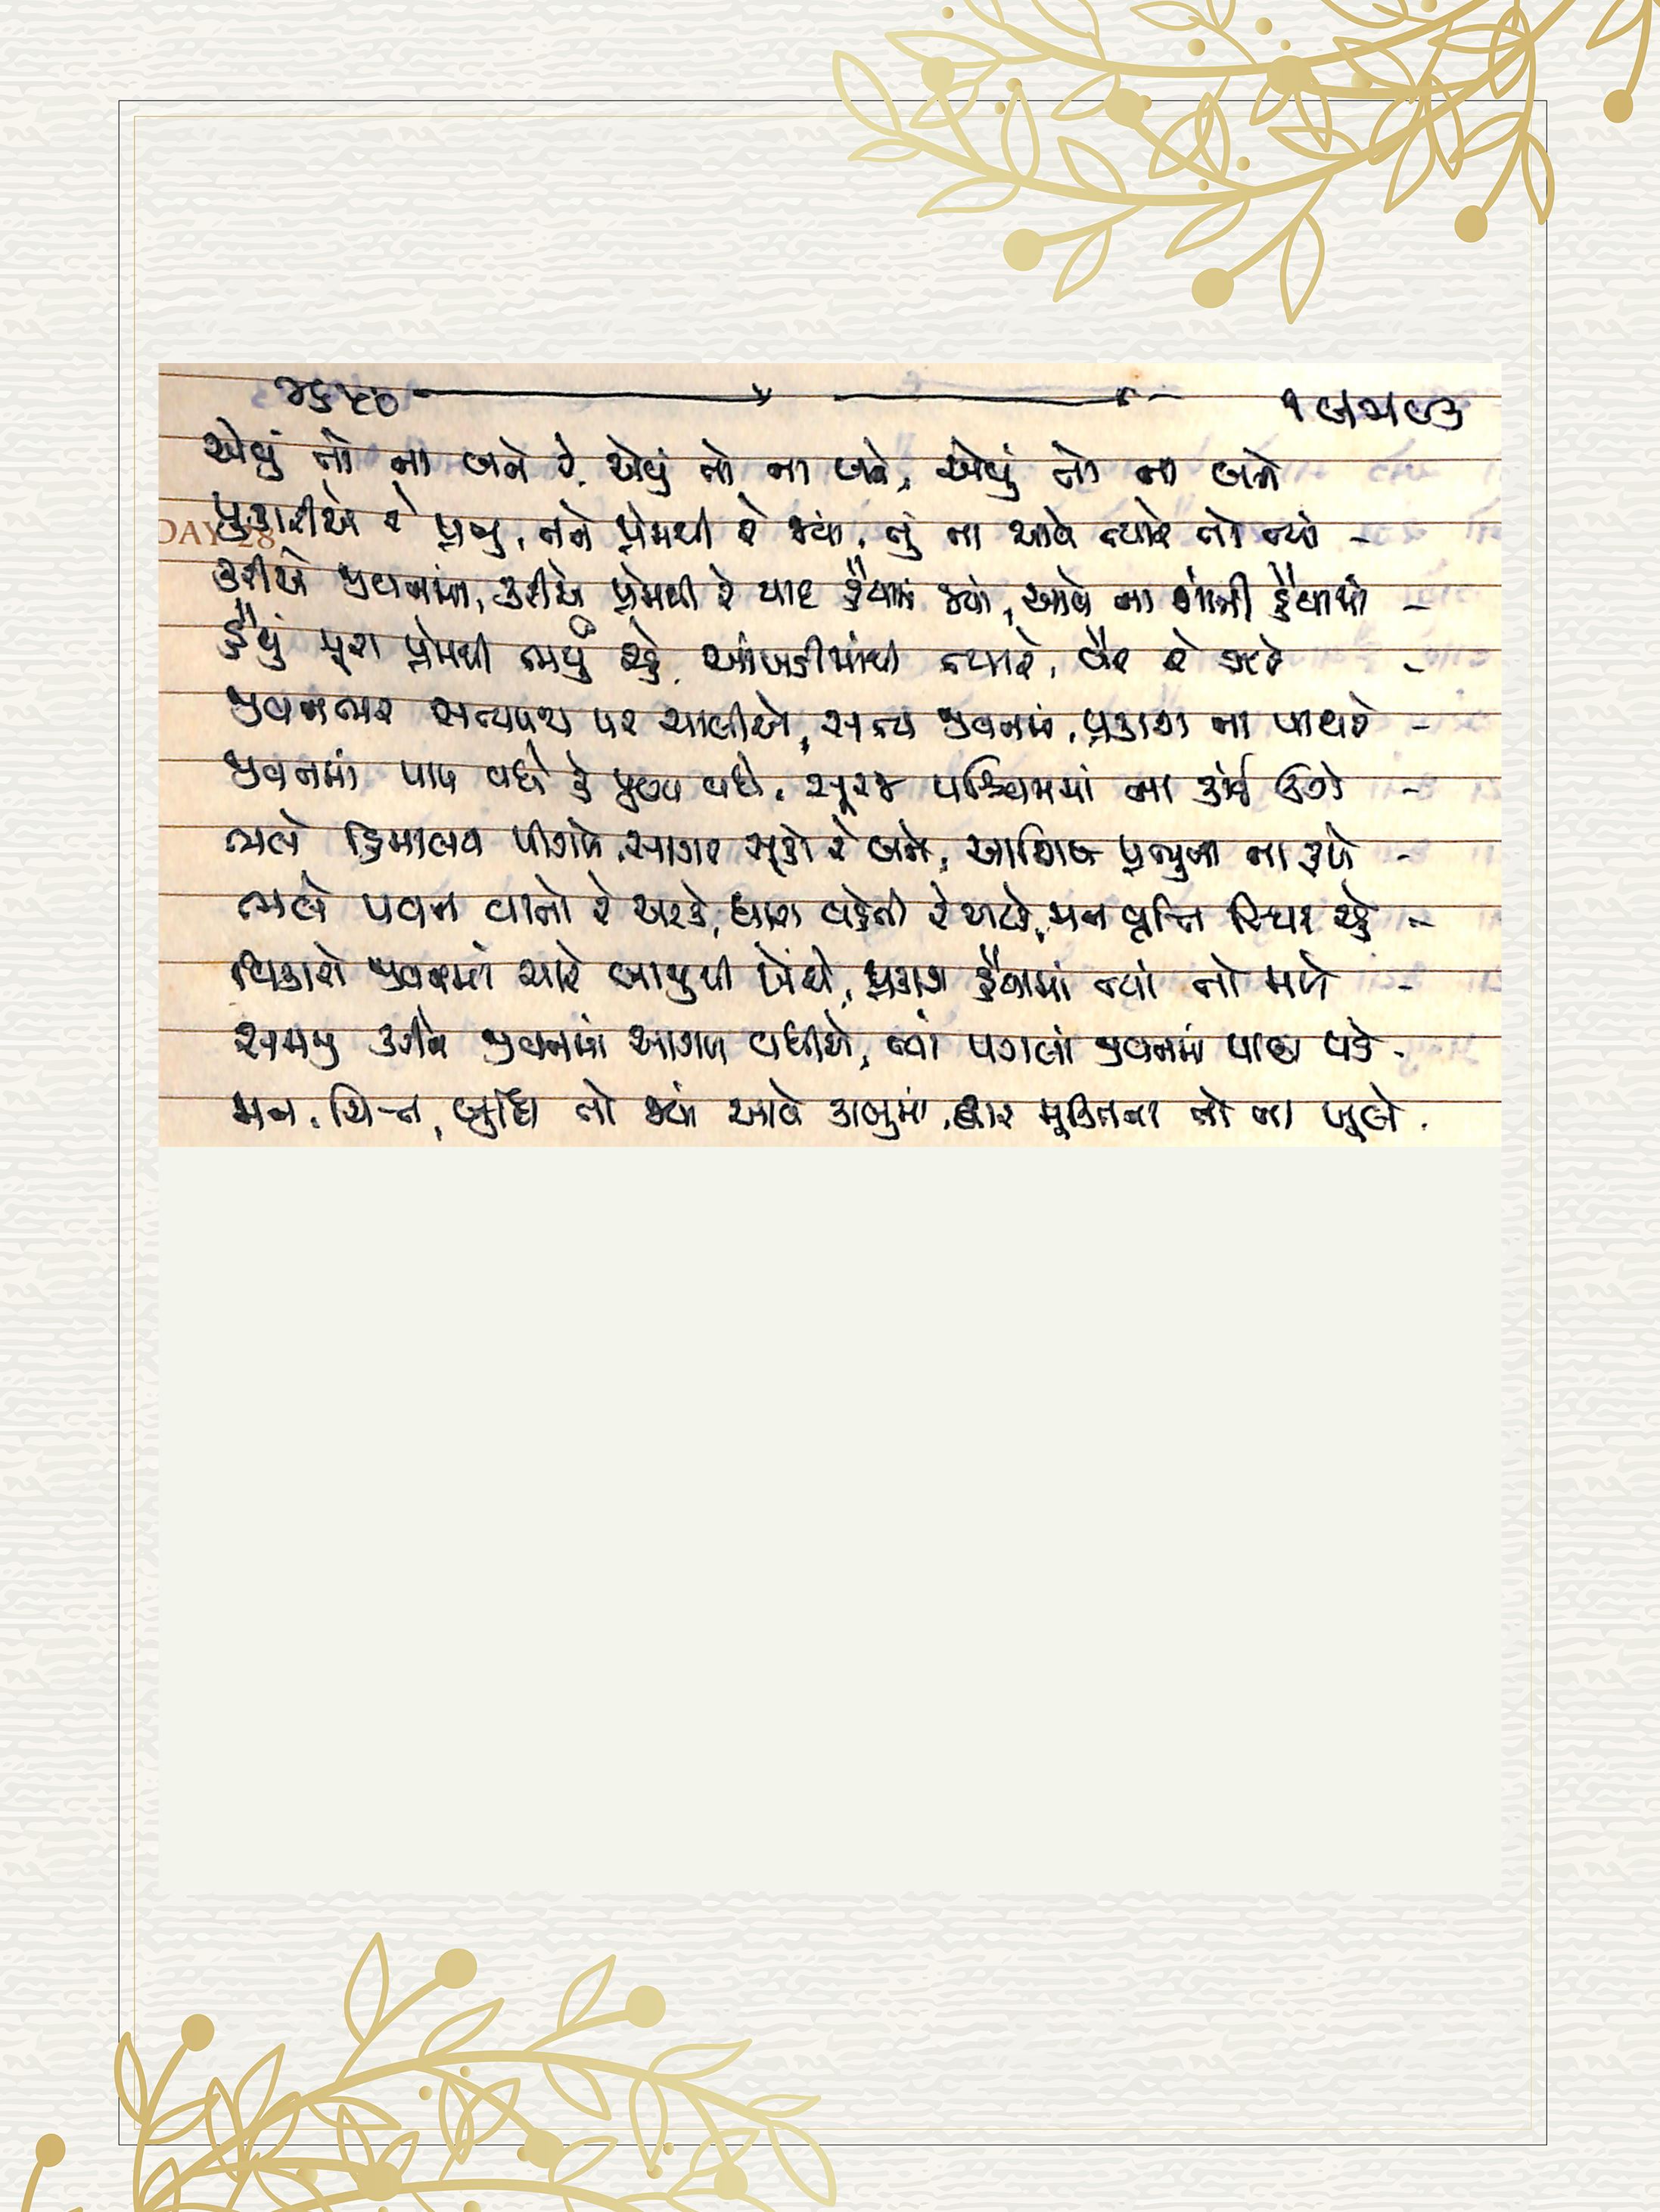 એવું તો ના બને રે, એવું તો ના બને, એવું તો ના બને
પુકારીએ રે પ્રભુ, તને પ્રેમથી રે જ્યાં, તું ના આવે ત્યારે તો ત્યાં -
કરીએ જીવનમાં, કરીએ પ્રેમથી રે યાદ હૈયામાં જ્યાં, આવે ના શાંતી હૈયામાં -
હૈયું પૂરા પ્રેમથી ભર્યું રહે, આંખડીમાંથી ત્યારે, વૈર રે ઝરે -
જીવનભર સત્યપથ પર ચાલીએ, સત્ય જીવનમાં, પ્રકાશ ના પાથરે -
જીવનમાં પાપ વધે કે પુણ્ય વધે, સૂરજ પશ્ચિમમાં ના કાંઈ ઉગે -
ભલે હિમાલય પીગળે, સાગર સૂકો રે બને, આશિષ પ્રભુના ના રૂકે -
ભલે પવન વાતો રે અટકે, ધારા વહેતી રે અટકે, મન વૃત્તિ સ્થિર રહે -
વિકારો જીવનમાં ચારે બાજુથી ખેંચે, હૈયામાં ત્યાં તો મળે -
સમજુ કરીને જીવનમાં આગળ વધીએ, ત્યાં પગલાં જીવનમાં પાછા પડે -
મન, ચિત્ત, બુદ્ધિ તો જ્યાં આવે કાબુમાં, દ્વાર મૂક્તિના તો ના ખૂલે.